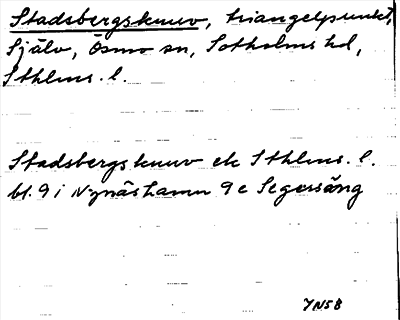 Stadsbergsknuv, triangelpunkt,
Själv, Ösmo sn, Sotholms hd,
Sthlms. l.
Stadsbergsknuv ek Sthlms. l.
bl. 9 i Nynäshamn 9 e Segersäng
YNSB